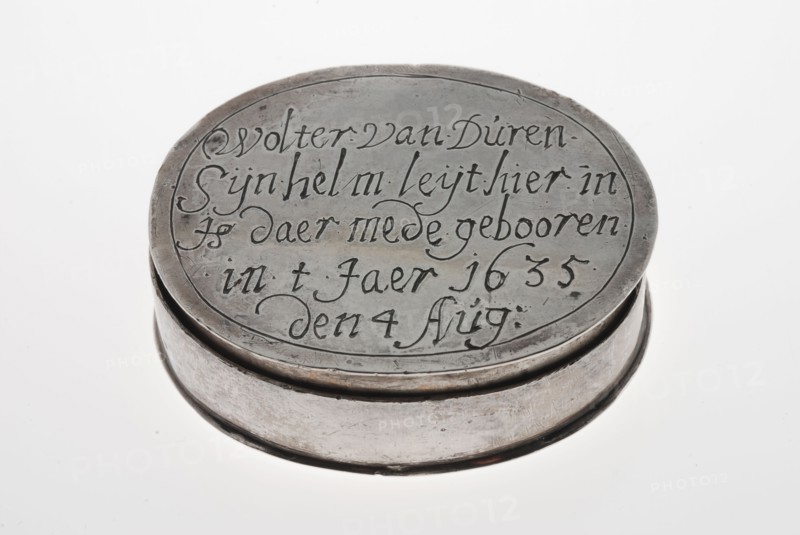 Wolter van Dúren
Sijn helm leijt hier in
Js daer mede gebooren
in t Jaer 1635
den 4 Aúg:
PHOTO12